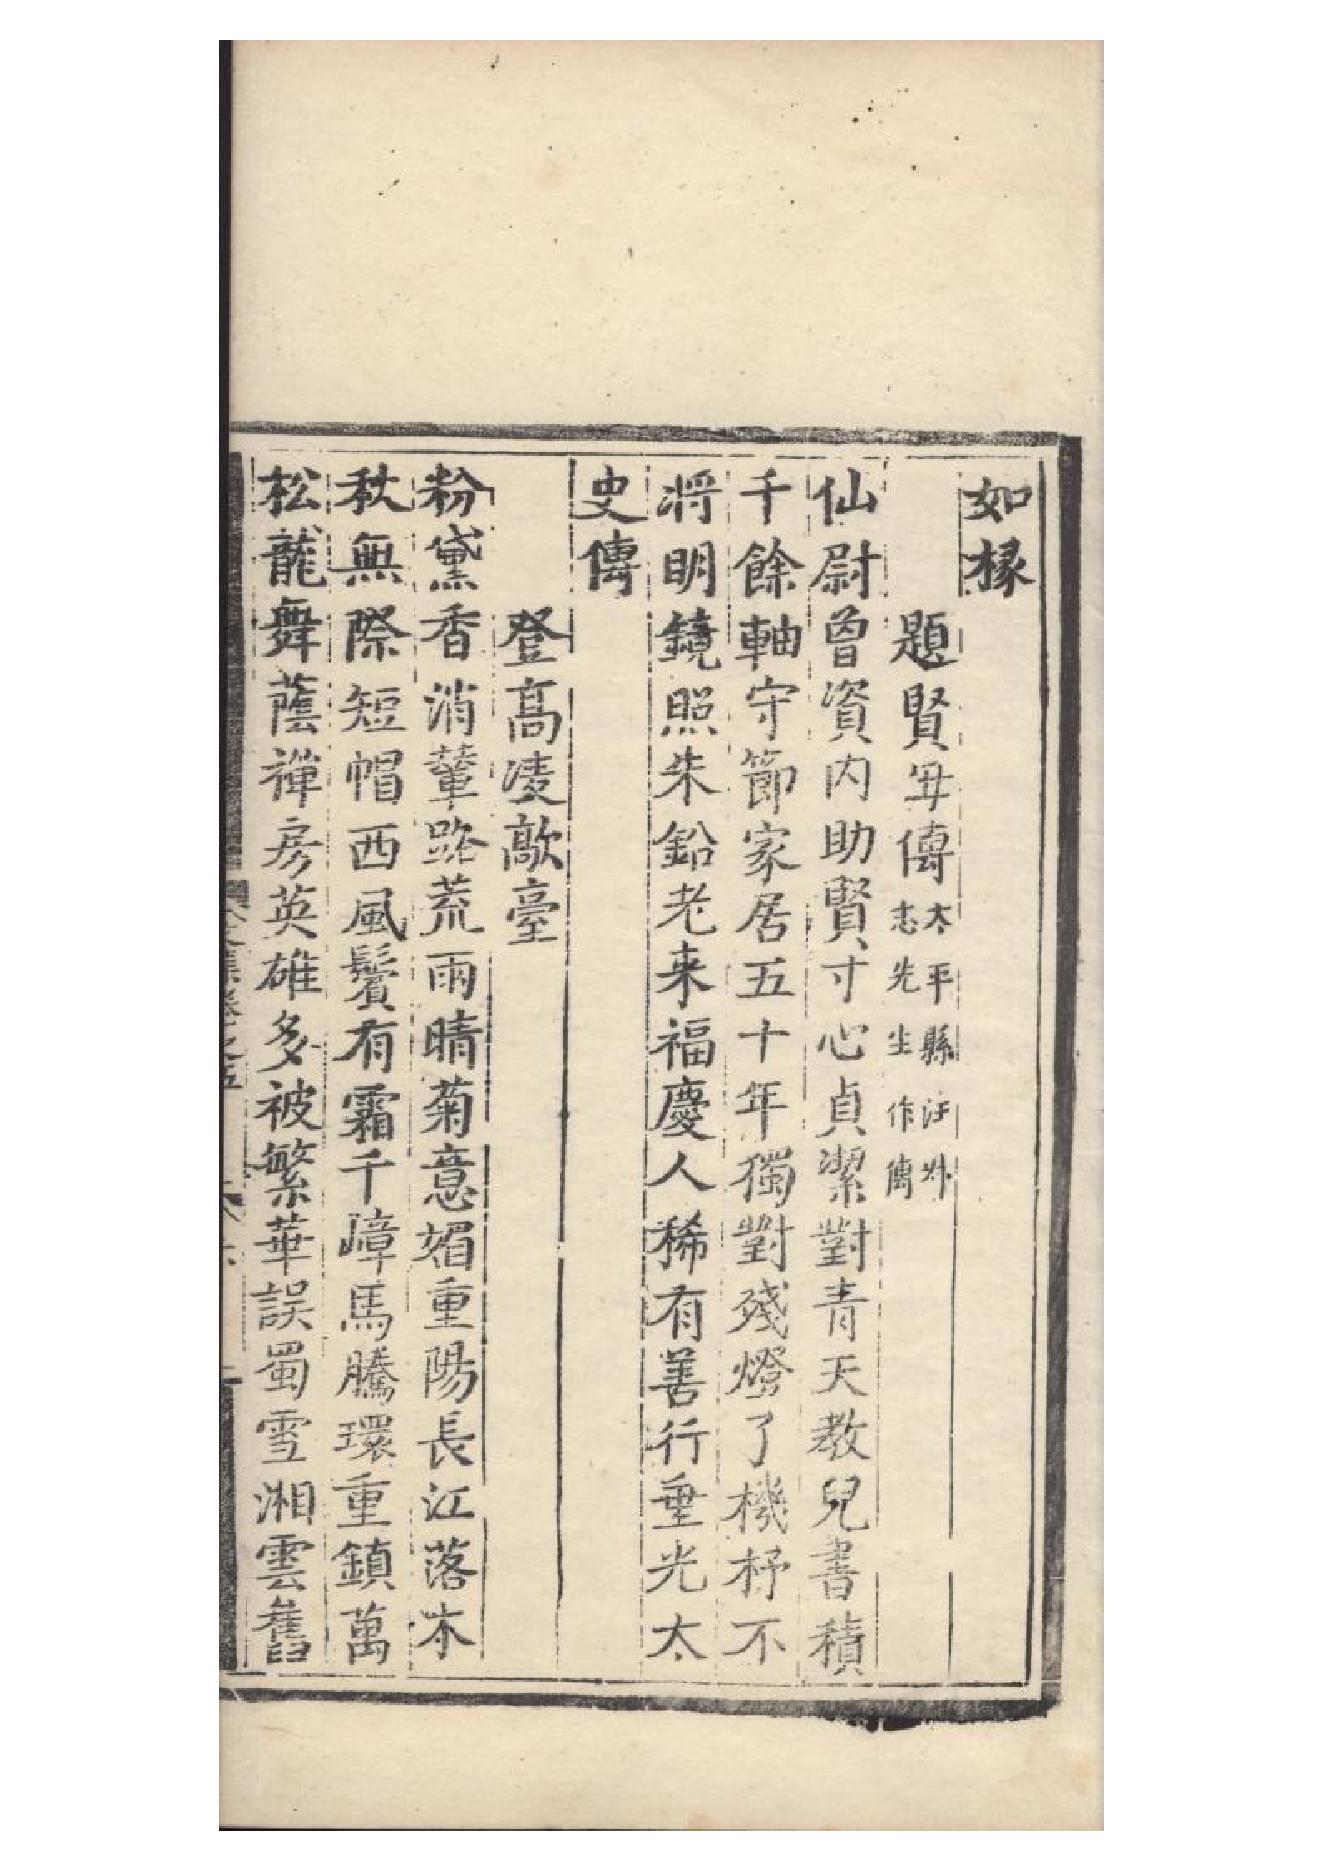 如椽
題賢毋傳太平縣汪
忠先生作傳
仙尉曾資内助賢寸心貞潔對青天教兒書積
千餘軸守節家居五十年獨對殘燈了機杼不
将明鏡照朱鉛老来福慶人稀有善行垂光太
史傳
登高凌歊臺
粉黛香消輦路荒雨晴菊意媚重陽長江落木
秋無際短帽西風鬢有霜千嶂馬騰環重鎮萬
松龍舞蔭禪房英雄多被繁華誤蜀雪湘雲舊